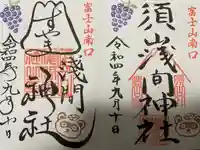 富士山南口
須山浅間神社
令和四年九月十日
富士山南口
浅間
神社
令和四年九月十日